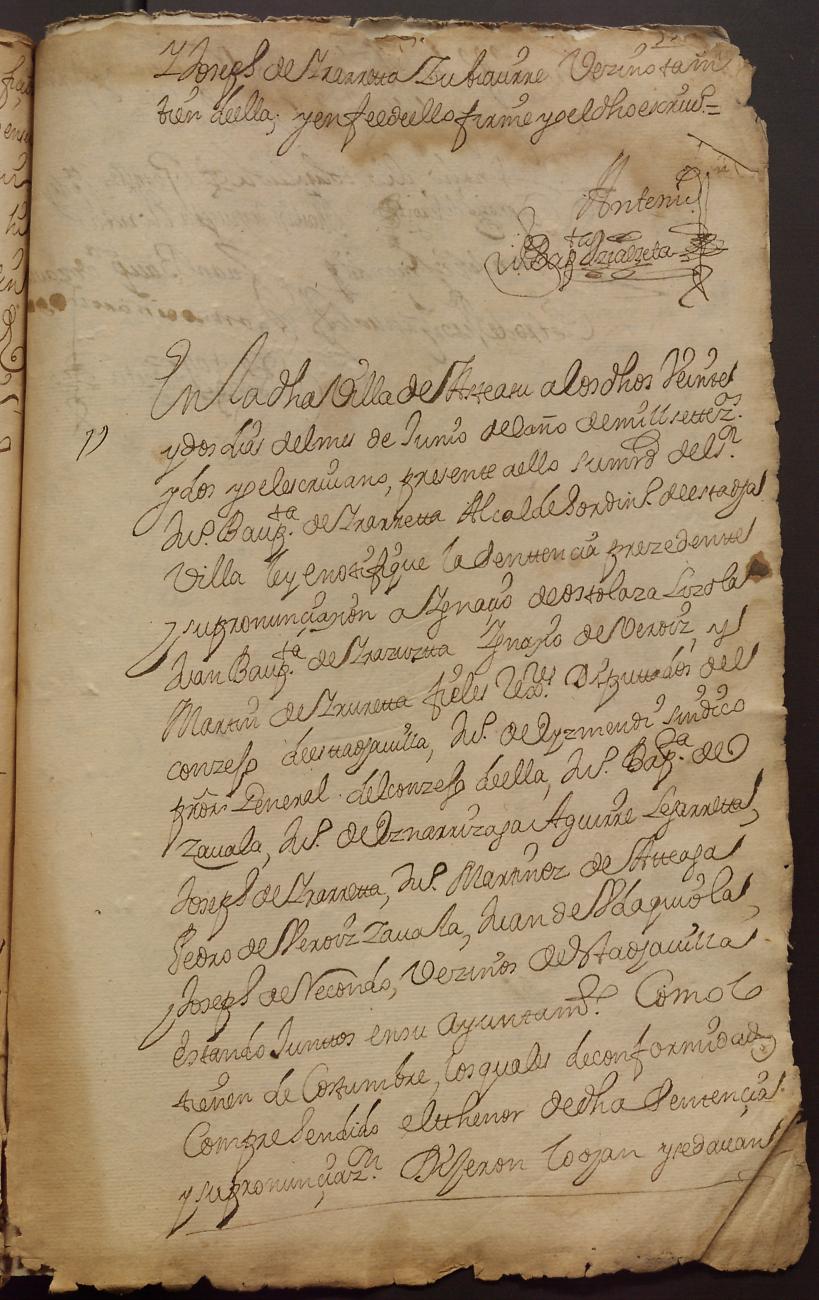 Y Joseph de Yrarretta Zubiaurre Vezino tam
bien della; y en fee dello firme yo el dho escriuº=
Antemi
Bapta
En la dha Villa de Asteasu a los dhos Veinte
y dos dias del mes de Junio del año de mill settezs
y dos yo el escriuano, presente aello su mrd del Sr
Juº Baupta de Yrarretta Alcalde hordinº de esta dha
Villa ley e notifique la Senttencia prezedente
y su pronunciazion a Ygnaçio de ostolaza Loyola
Juan Baupta de Yrazuzta Ygnazio de Veroiz, y
Martin de Yruretta fieles Rexres Diputtados del
conzejo de esttadhauilla, Juº de Yzmendi sindico
pror General del conzejo de ella, Juº Bapta de
Zauala, Juº de Aguirre Lejarretta,
Joseph de Yrarretta, Juº Martinez de Atteaga
Pedro de Veroiz Zauala, Juan de
Joseph de Necondo, Vezinos de Esttadhauilla
estando Junttos en su Ayuntamto Como lo
tienen de Costumbre, los quales de conformidad
Comprehendido el thenor de dha Sentençia
y su pronunçiazn Dijeron lo oyan y se dauan